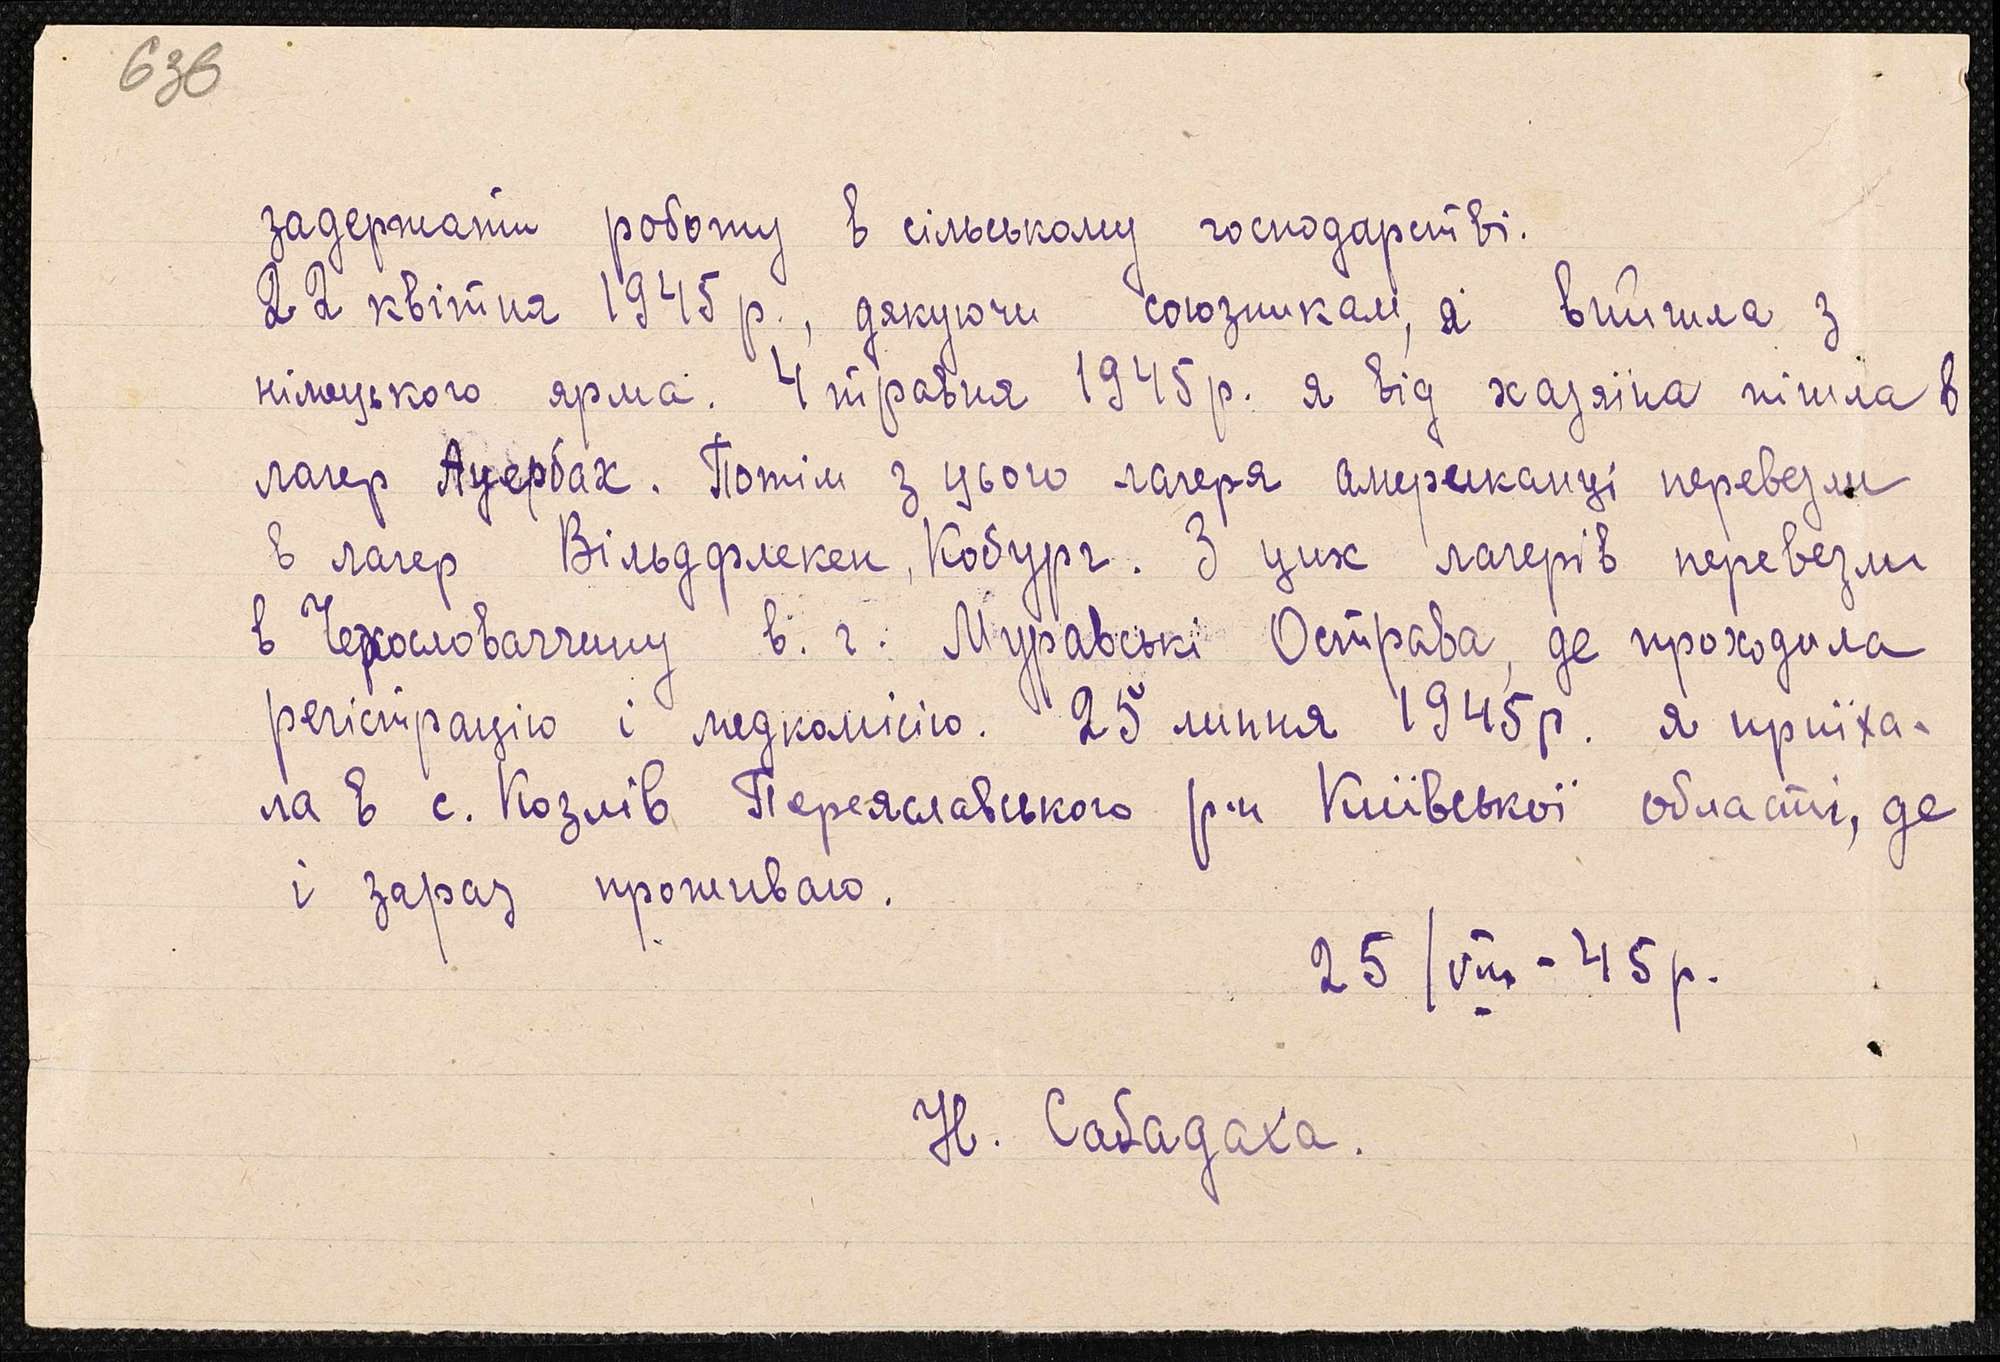 63в
задержати роботу в сільському господарстві.
22 квітня 1945 р., дякуючи союзникам, я вийшла з
німецького ярма. 4 травня 1945 р. я від хазяїна пішла в
лагер Ауербах. Потім з цього лагеря американці перевезли
в лагер Вільдфлекен, Кобург. З цих лагерів перевезли
в Чехословаччину в. г. Муравські Острава, де проходила
регістрацію і медкомісію. 25 липня 1945 р. я приїха-
ла в с. Козлів Переяславського р-н Київської області, де
і зараз проживаю.
25/VIII - 45 р.
Н. Сабадаха.